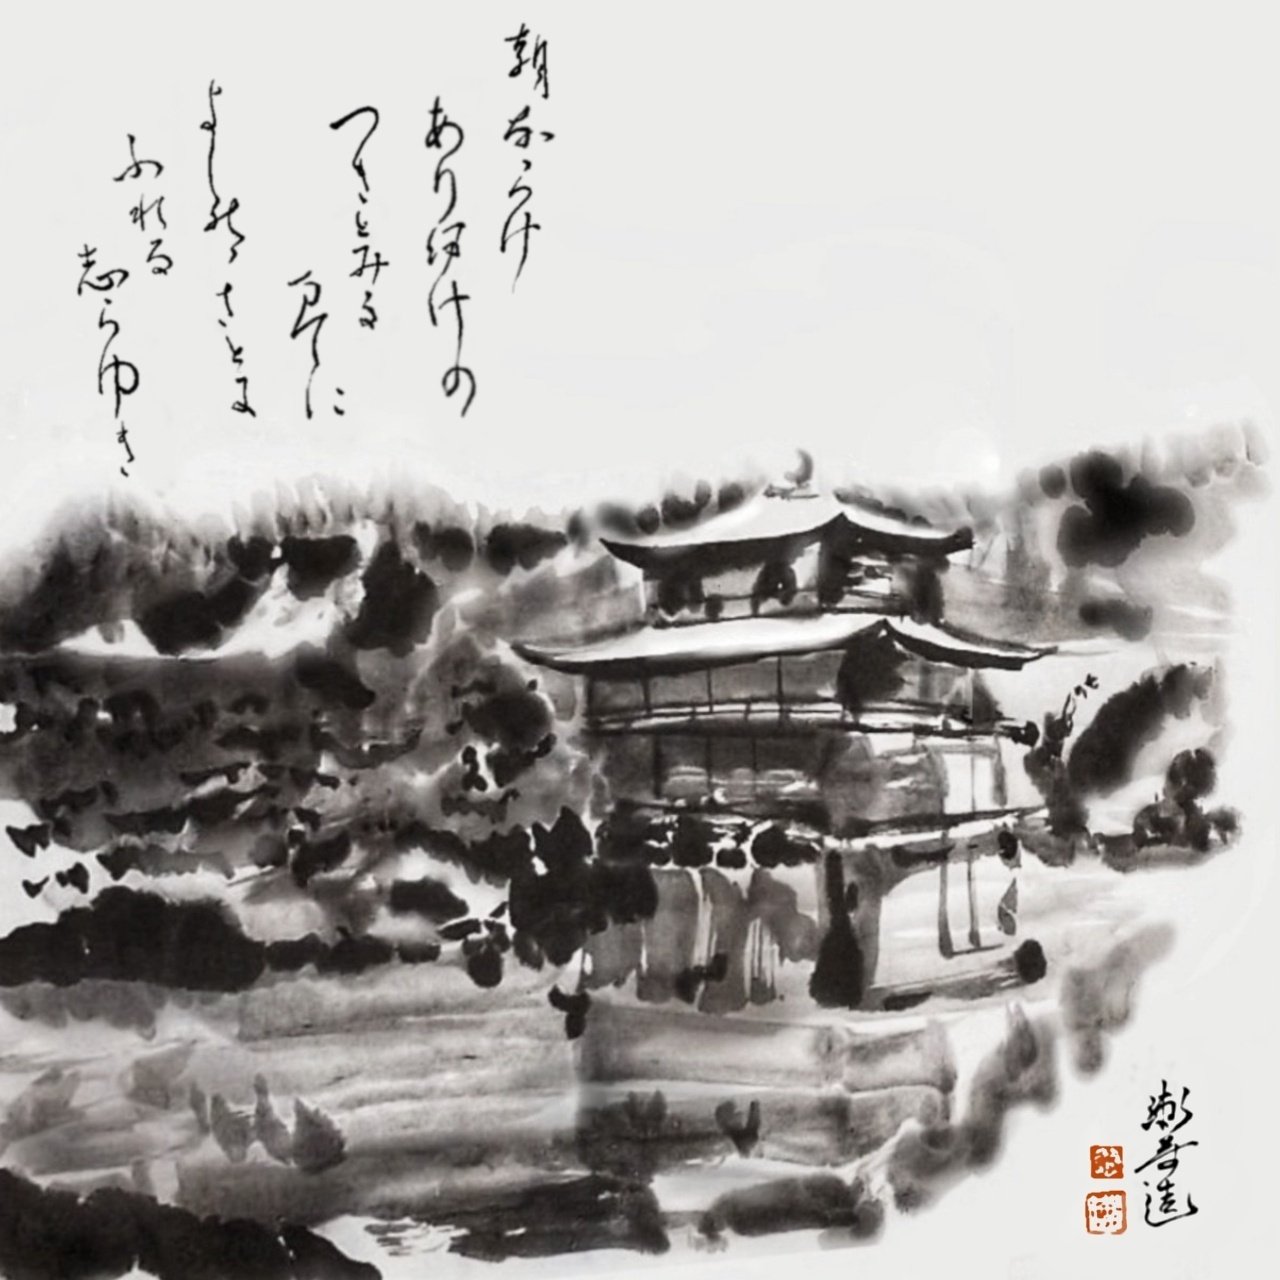 朝ほらけ
ありあけの
つきとみる
まてに
よしのゝさとに
ふれる
志らゆき